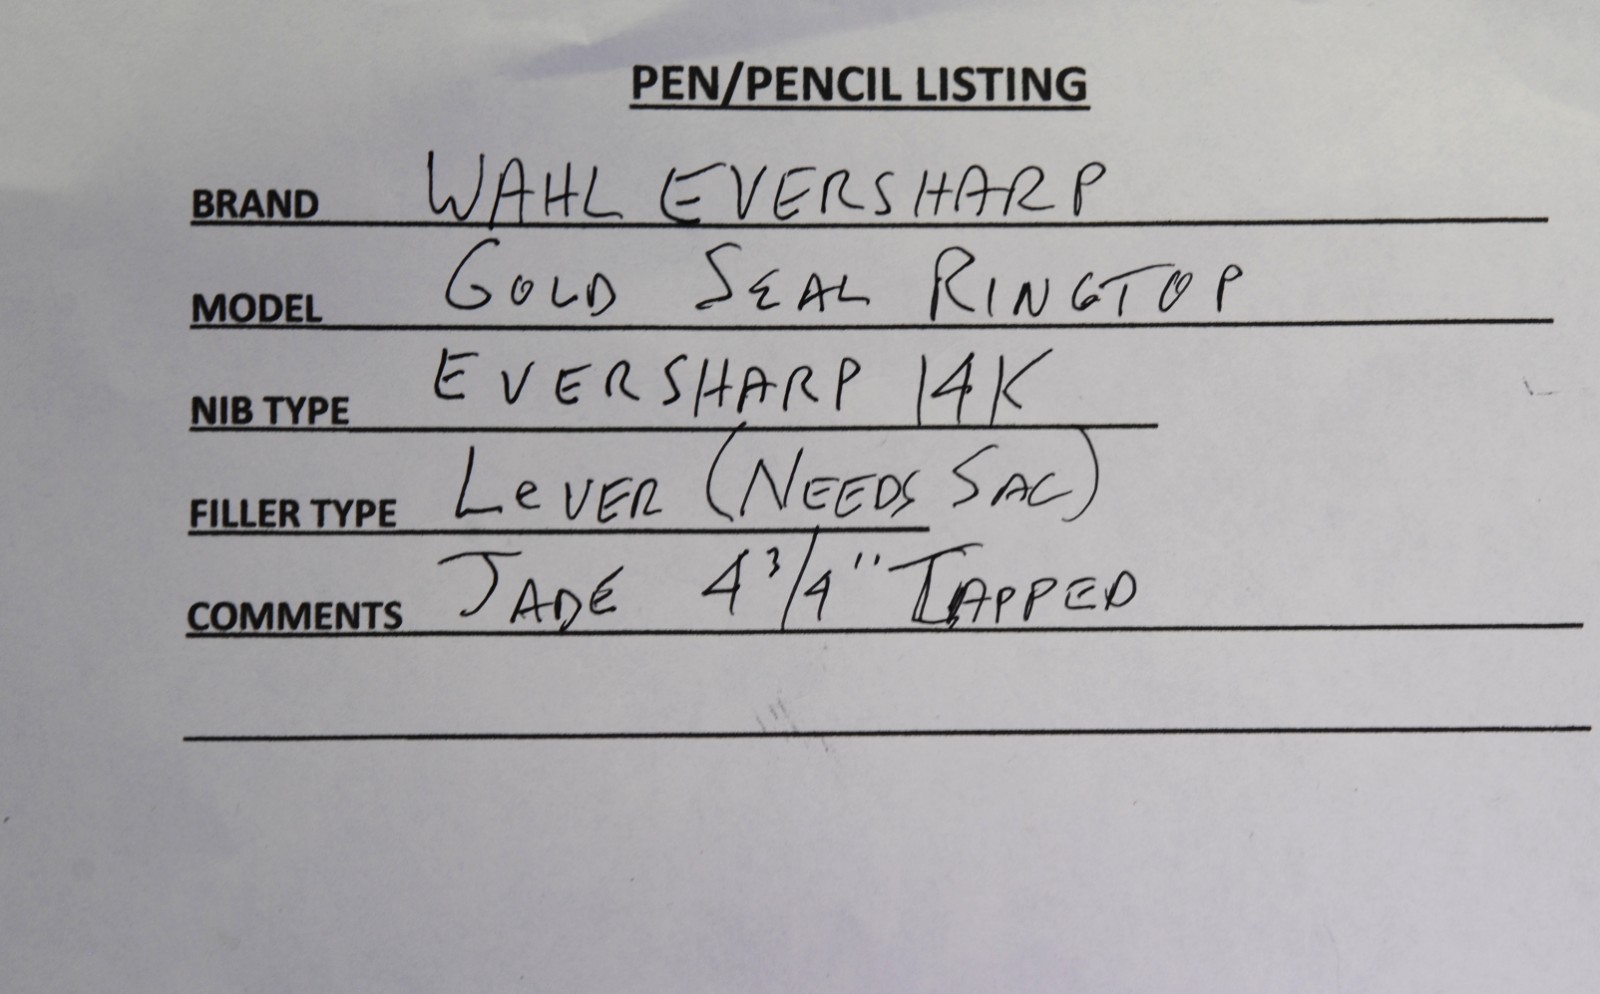 PEN/PENCIL LISTING
BRAND WAHL EVERSHARP
MODEL GOLD SEAL RINGTOP
NIB TYPE EVERSHARP 14K
FILLER TYPE LeVER (NEEDS SAC)
COMMENTS JADE 4 3/4" TAPPED